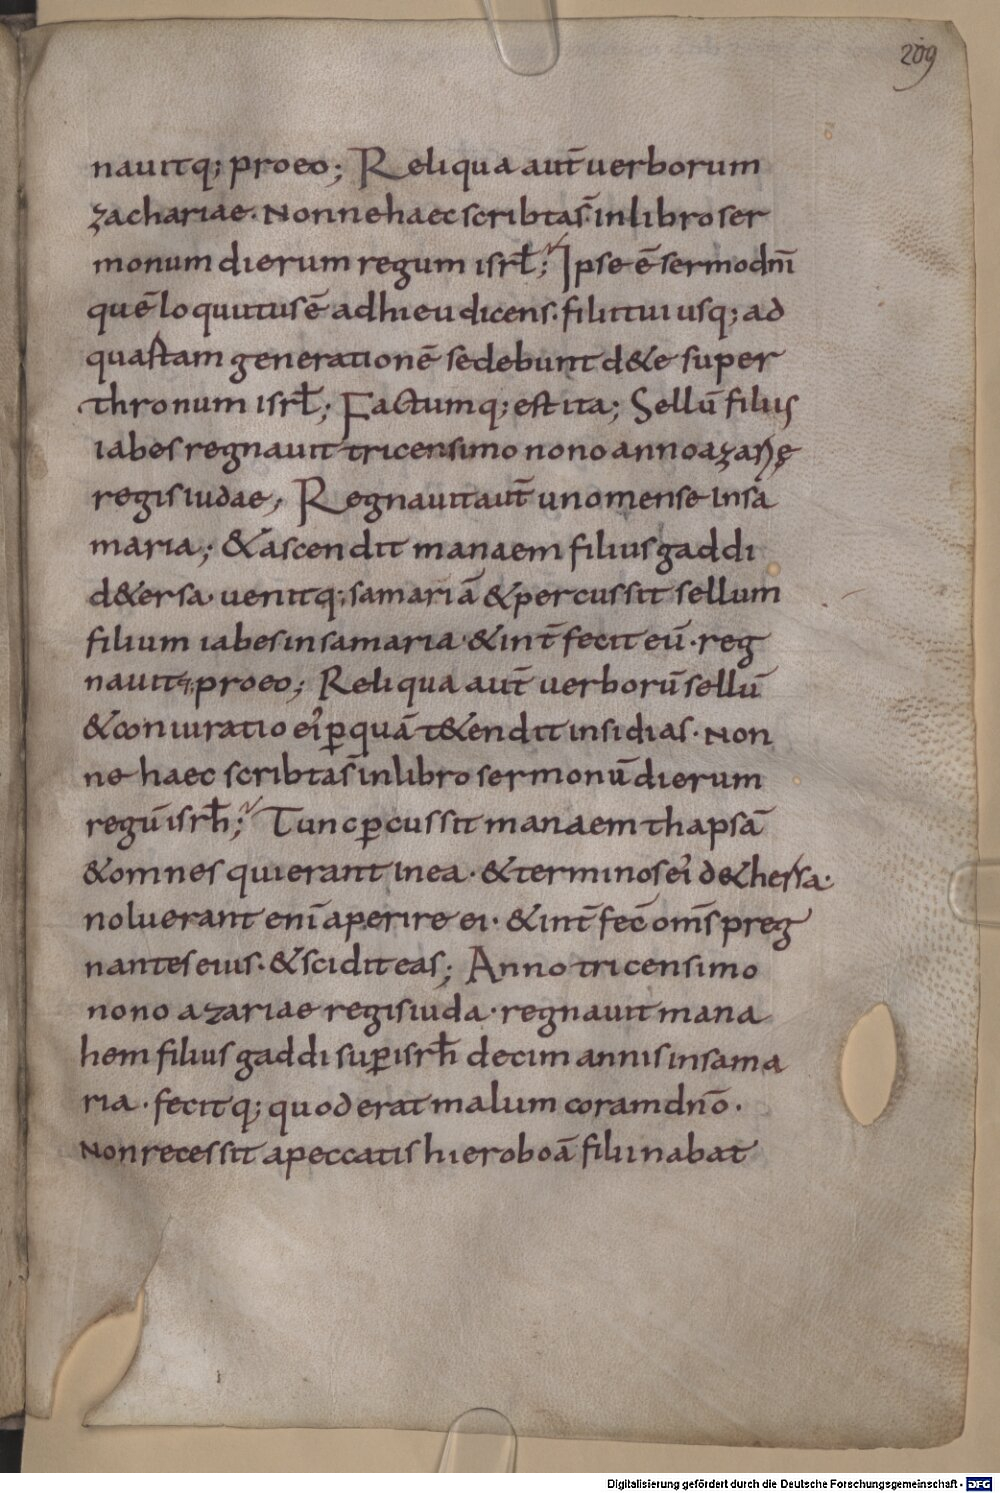 209
nauitq; proeo; Reliqua aut̄ uerborum
zachariae. Nonne haec scribta s̄ in libro ser
monum dierum regum isrl̄; Ipse ē sermo dn̄i
quē loquutus ē ad hieu dicens. filii tui usq; ad
quartam generationē sedebunt d&e super
thronum isrl̄; Factumq; est ita; Sellū filius
iabes regnauit tricensimo nono anno azarię
regis iudae, Regnauit aut̄ uno mense in sa
maria; & ascendit manaem filius gaddi
d&ersa. uenitq; samariā & percussit sellum
filium iabes in samaria. & int̄fecit eū. reg
nauitq; proeo; Reliqua aut̄ uerborū sellū
& coniuratio ei' p̱quā t&endit insidias. Non
ne haec scribta s̄ in libro sermonū dierum
regū isrh̄; Tunc p̱cussit manaem thapsā
& omnes qui erant in ea. & terminos ei' de thersa.
noluerant enī aperire ei. & int̄fec̄ om̄s preg
nantes eius. & scidit eas; Anno tricensimo
nono azariae regis iuda. regnauit mana
hem filius gaddi sup̱ isrh̄ decim annis in sama
ria. fecitq; quod erat malum coram dn̄o.
Non recessit a peccatis hieroboā filii nabat
Digitalisierung gefördert durch die Deutsche Forschungsgemeinschaft - DFG